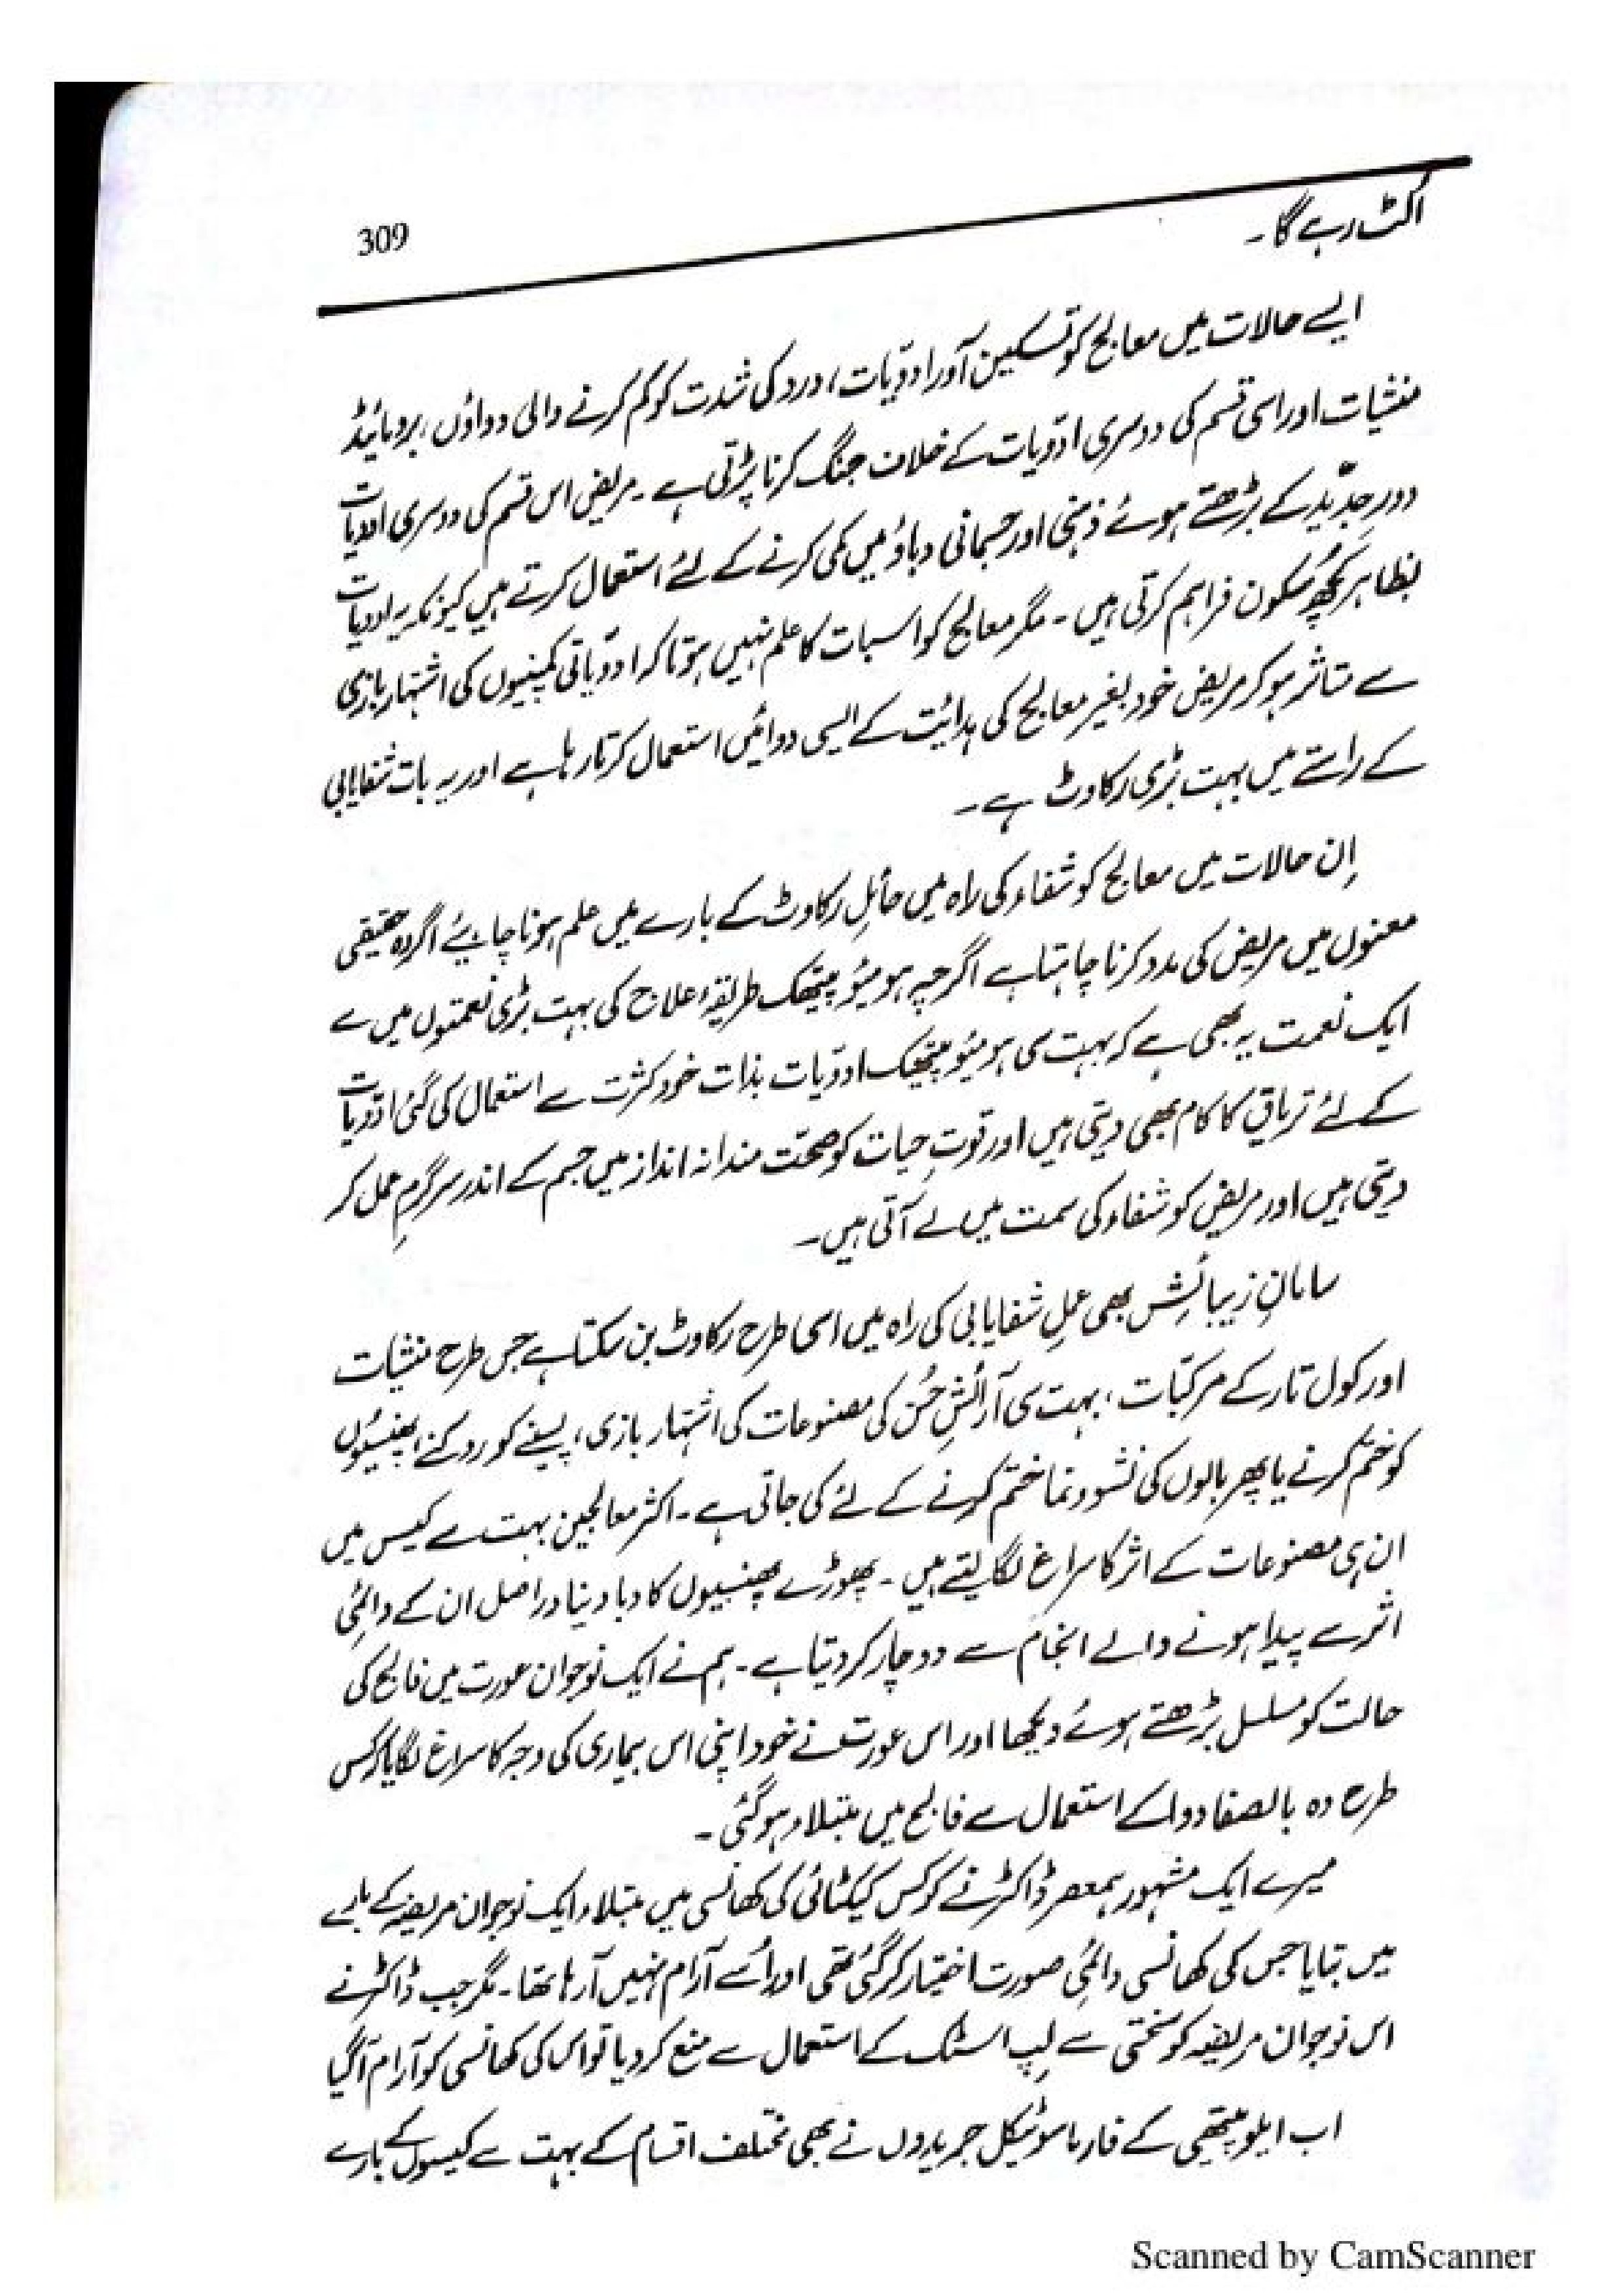 309
اُلٹ رہے گا۔
ایسے حالات میں معالج کو تسکین آور ادویات، درد کی شدت کو کم کرنے والی دواؤں، برومائیڈ
منشیات اور اسی قسم کی دوسری ادویات کے خلاف جنگ کرنا پڑتی ہے۔ مریض اس قسم کی دوسری ادویات
دورِ جدید کے بڑھتے ہوئے ذہنی اور جسمانی دباؤ میں کمی کرنے کے لئے استعمال کرتے ہیں کیونکہ یہ ادویات
بظاہر کچھ سکون فراہم کرتی ہیں۔ مگر معالج کو اس بات کا علم نہیں ہوتا کہ ادویاتی کمپنیوں کی اشتہار بازی
سے متاثر ہو کر مریض خود بغیر معالج کی ہدائت کے ایسی دوائیں استعمال کرتا رہا ہے اور یہ بات شفایابی
کے راستے میں بہت بڑی رکاوٹ ہے۔
اِن حالات میں معالج کو شفاء کی راہ میں حائل رکاوٹ کے بارے میں علم ہونا چاہیئے اگر وہ حقیقی
معنوں میں مریض کی مدد کرنا چاہتا ہے اگرچہ ہومیوپیتھک طریقۂ علاج کی بہت بڑی نعمتوں میں سے
ایک نعمت یہ بھی ہے کہ بہت سی ہومیوپیتھک ادویات بذات خود کثرت سے استعمال کی گئی ادویات
کے لئے تریاق کا کام بھی دیتی ہیں اور قوتِ حیات کو صحت مندانہ انداز میں جسم کے اندر سرگرمِ عمل کر
دیتی ہیں اور مریض کو شفاء کی سمت میں لے آتی ہیں۔
سامانِ زیبائش بھی عملِ شفایابی کی راہ میں اسی طرح رکاوٹ بن سکتا ہے جس طرح منشیات
اور کول تار کے مرکبات، بہت سی آرائشِ حُسن کی مصنوعات کی اشتہار بازی، پسینے کو روکنے، پھنسیوں
کو ختم کرنے یا پھر بالوں کی نشوونما ختم کرنے کے لئے کی جاتی ہے۔ اکثر معالجین بہت سے کیس میں
ان ہی مصنوعات کے اثر کا سراغ لگا لیتے ہیں۔ پھوڑے پھنسیوں کا دبا دینا دراصل ان کے دائمی
اثر سے پیدا ہونے والے انجام سے دوچار کر دیتا ہے۔ ہم نے ایک نوجوان عورت میں فالج کی
حالت کو مسلسل بڑھتے ہوئے دیکھا اور اس عورت نے خود اپنی اس بیماری کی وجہ کا سراغ لگایا کہ کس
طرح وہ بالصفا دوا کے استعمال سے فالج میں مبتلاء ہو گئی۔
میرے ایک مشہور ہمعصر ڈاکٹر نے کوکس کیکٹائی کی کھانسی میں مبتلاء ایک نوجوان مریضہ کے بارے
میں بتایا جس کی کھانسی دائمی صورت اختیار کر گئی تھی اور اُسے آرام نہیں آ رہا تھا۔ مگر جب ڈاکٹر نے
اس نوجوان مریضہ کو سختی سے لِپ اسٹک کے استعمال سے منع کر دیا تو اس کی کھانسی کو آرام آ گیا
اب ایلوپیتھی کے فارماسوٹیکل جریدوں نے بھی مختلف اقسام کے بہت سے کیسوں کے بارے
Scanned by CamScanner